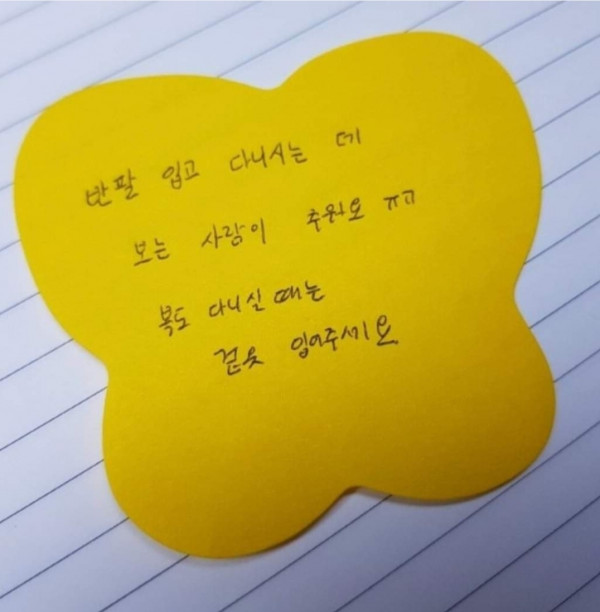 반팔 입고 다니시는 데
보는 사람이 추워요 ㅠㅠ
복도 다니실 때는
겉옷 입어주세요